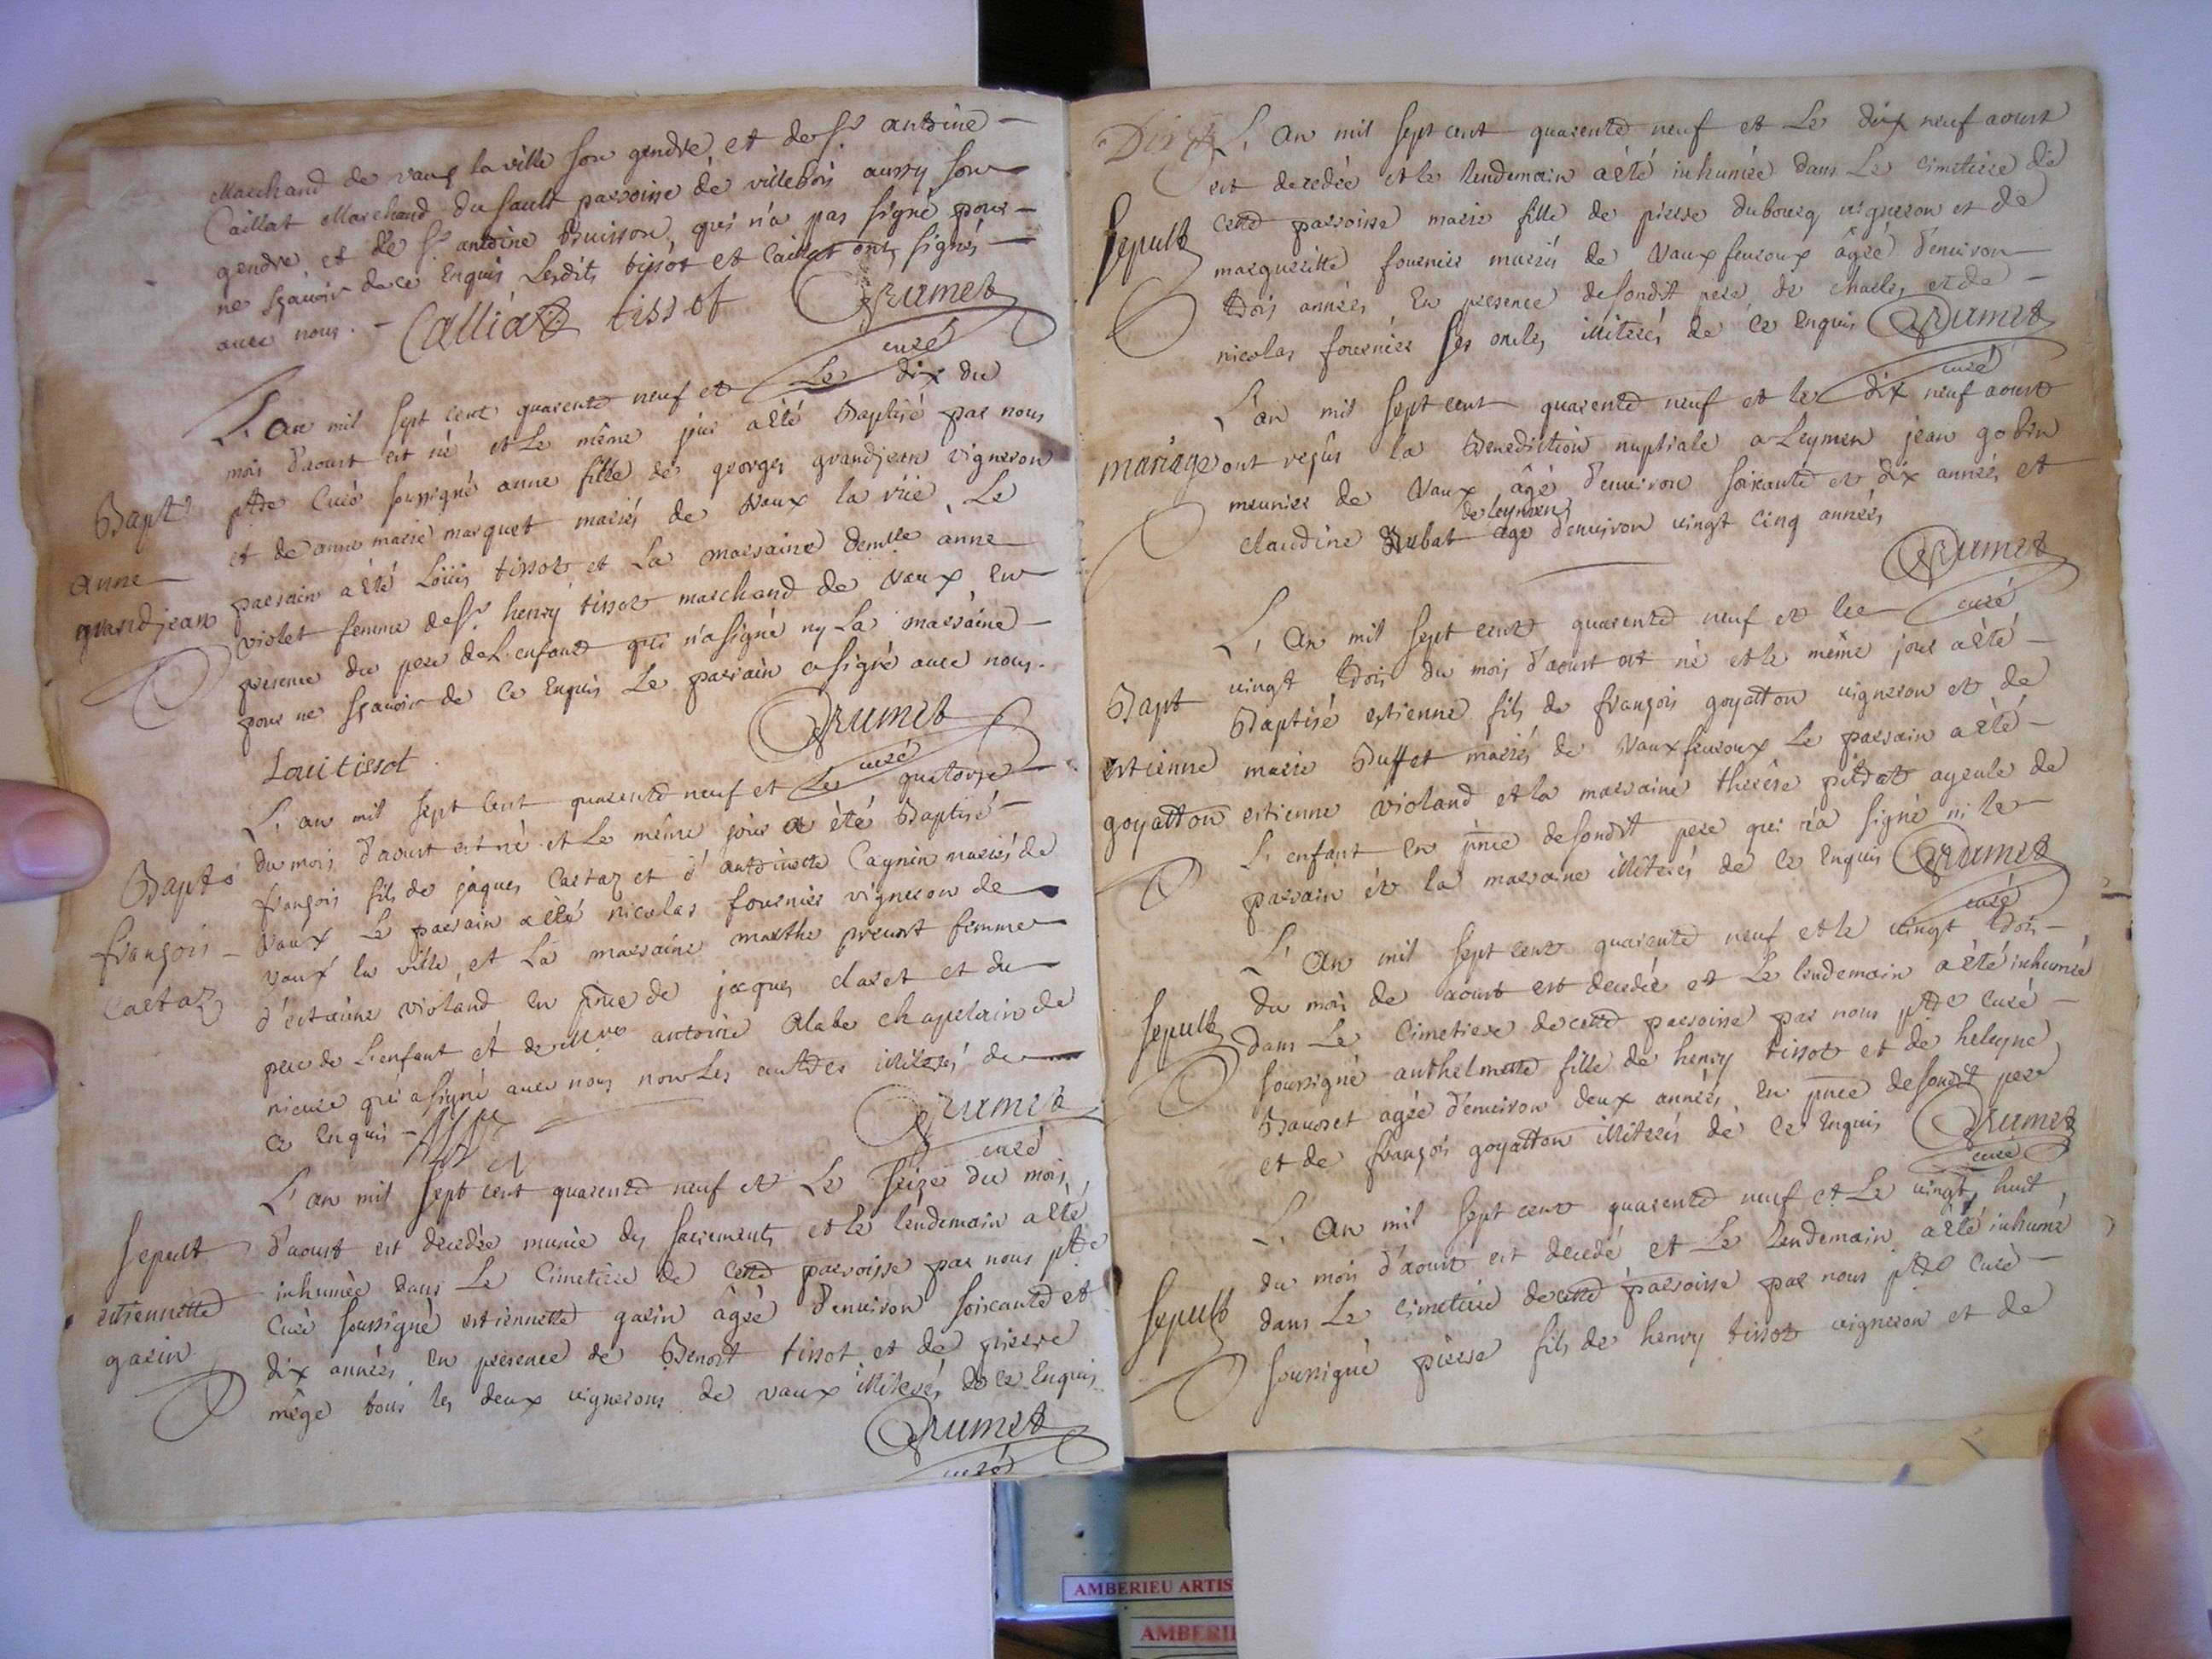 Marchand de vaux la ville son gendre et de Sr antoine
Caillat Marchand du sault parroisse de villebois aussy son
gendre et de Sr antoine Buisson, qui n'a pas signé pour
ne sçavoir de ce Enquis Lesdits tissot et Caillat ont signés
avec nous.
Calliat tissot Grumet
curé
L'an mil sept cent quarente neuf et Le dix du
mois d'aoust est né et Le même jour a été Baptisé par nous
ptre Curé soussigné anne fille de georges grandjean vigneron
Bapt
et de anne marie marquet mariés de Vaux la ville, Le
anne
parrain a été Loüis tissot et La marraine demlle anne
grandjean
violet femme de Sr henry tissot marchand de Vaux En
presence du pere de L'enfant qui n'a signé ny La marraine
pour ne sçavoir de ce Enquis Le parrain a signé avec nous.
Loui tissot Grumet
curé
L'an mil sept Cent quarente neuf et Le quatorze
du mois d'aoust est né et Le même jour a été Baptisé
Bapt
françois fils de jaques Castaz et d'antoinette Cagnin mariés de
françois
Vaux Le parrain a été nicolas fournier vigneron de
Castaz
vaux la ville, et La marraine marthe prevost femme
d'estienne violand En pñce de jacques claret et du
pere de L'enfant et de Mre antoine Alabe chapelain de
qui a signé avec nous non Les autres illiterés de
ce Enquis
Grumet
curé
L'an mil sept cent quarente neuf et Le seize du mois
Sepult
d'aoust est decedée munie des sacrements et le lendemain a été
inhumée dans Le Cimetiere de Cette parroisse par nous ptre
estiennette
Curé soussigné estiennette garin âgée d'environ soixante et
garin
dix années En presence de Benoit tissot et de pierre
mège tous les deux vignerons de vaux illiterés de ce Enquis
Grumet
curé
L'an mil sept cent quarente neuf et Le dix neuf aoust
est decedée et le lendemain a été inhumée dans Le Cimetiere de
Sepult
Cette parroisse marie fille de pierre dubourg vigneron et de
margueritte fournier mariés de Vauxfevroux âgée d'environ
trois années En presence de sondit pere de charles et de
nicolas fournier ses oncles illiterés de ce Enquis Grumet
curé
L'an mil sept cent quarente neuf et le dix neuf aoust
mariage
ont reçus la Benediction nuptiale a Leymen jean gobin
meunier de Vaux âgé d'environ soixante et dix années et
de leymen
claudine Rubat age d'environ vingt cinq années
Grumet
curé
L'an mil sept cent quarente neuf et le
vingt trois du mois d'aoust est né et le même jour a été
Bapt
Baptisé estienne fils de françois goyatton vigneron et de
estienne
marie Buffet mariés de Vauxfevroux Le parrain a été
goyatton
estienne violand et la marraine therèse pitrat ayeule de
L'enfant En pñce de sondit pere qui n'a signé ni le
parrain et la marraine illiterés de ce Enquis Grumet
curé
L'an mil sept cent quarente neuf et le vingt trois
du mois de aoust est decedée et Le lendemain a été inhumée
Sepult
dans Le Cimetiere de cette parroisse par nous ptre curé
soussigné anthelmette fille de henry tissot et de heleyne
agée d'environ deux années En pñce de sondit pere
et de françois goyatton illiterés de ce Enquis Grumet
curé
L'an mil sept cent quarente neuf et Le vingt huit
du mois d'aoust est decedé et Le Lendemain a été inhumé
Sepult
dans Le Cimetiere de cette parroisse par nous ptre Curé
soussigné pierre fils de henry tissot vigneron et de
AMBERIEU ARTIS
AMBERIE